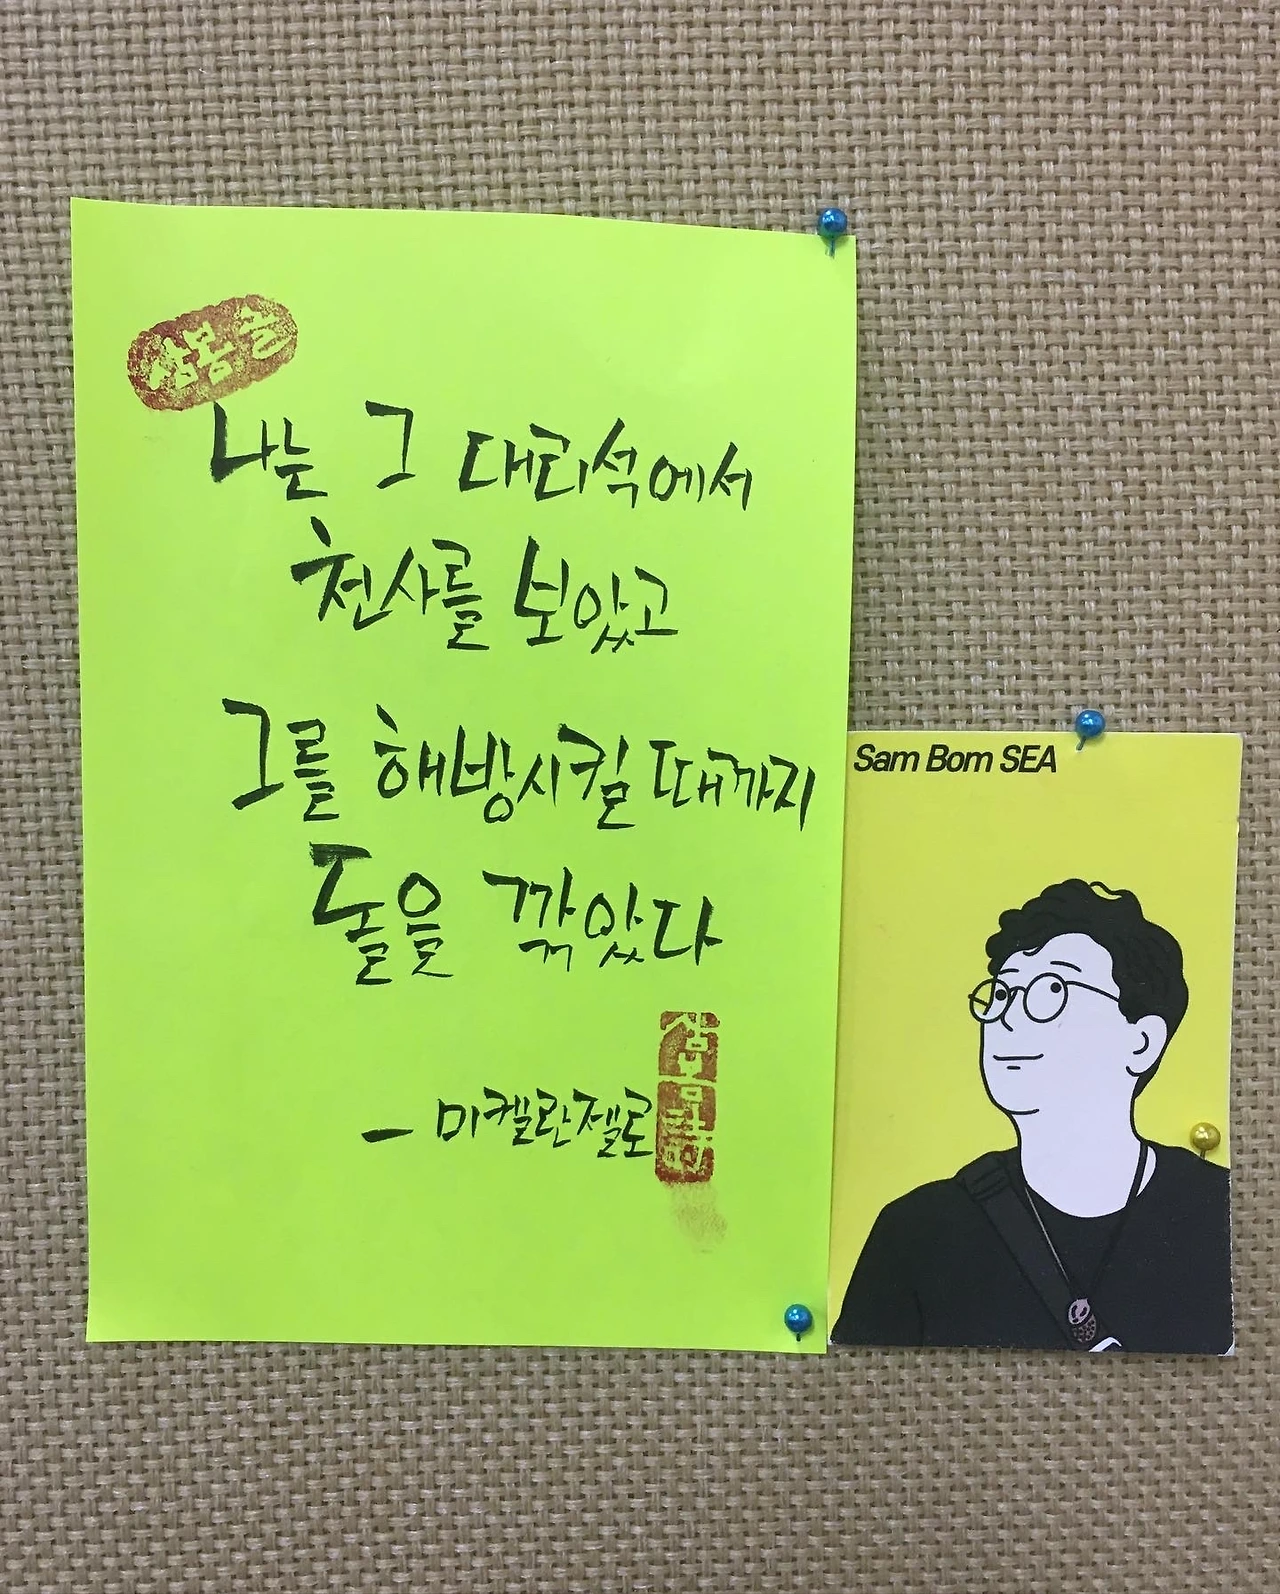 삼봄 솔
나는 그 대리석에서
천사를 보았고
그를 해방시킬 때까지
돌을 깎았다
- 미켈란젤로
Sam Bom SEA